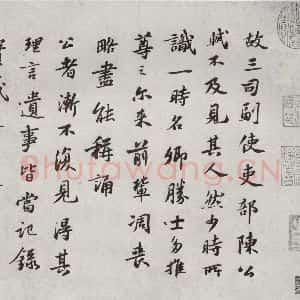 故三司副使吏部陳公
軾不及見其人然少時所
識一時名卿勝士多推
尊之尔来前輩凋喪
略盡能稱誦
公者漸不復見得其
理言遺事皆當記錄
Shufawang.CN